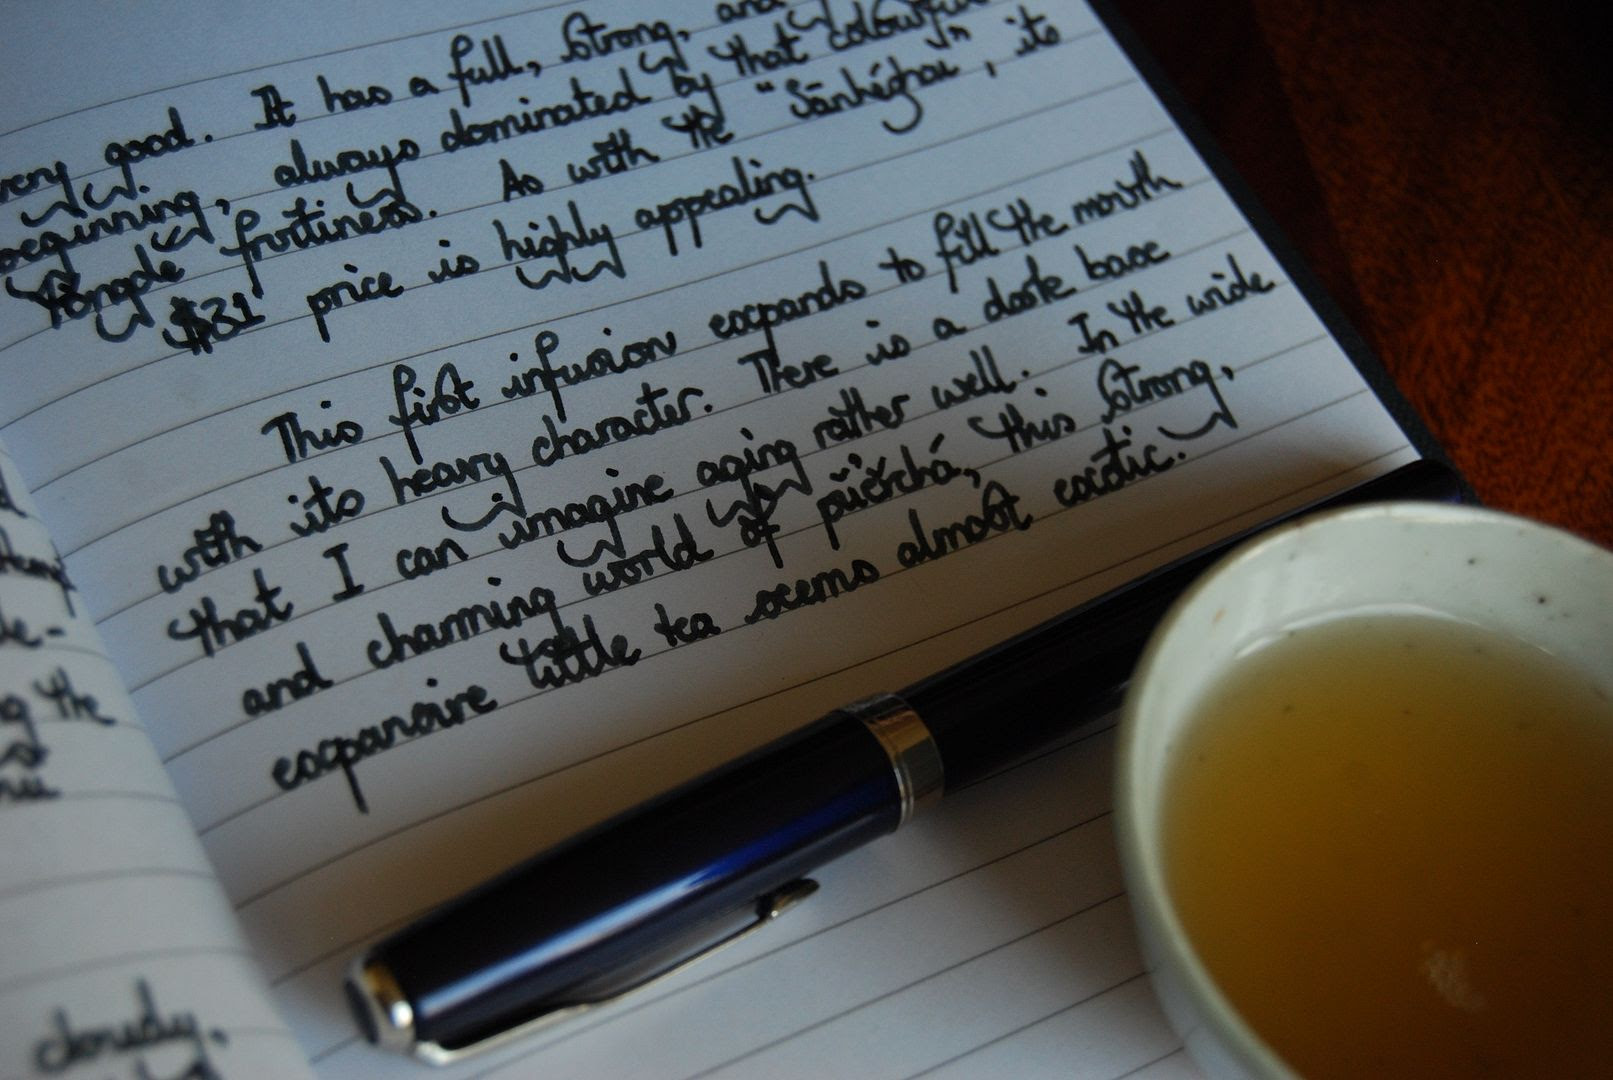 very good. It has a full, strong, and
beginning, always dominated by that colourful
Yōngdé fruitiness. As with the "Sānhégǔzhài", its
$31 price is highly appealing.
This first infusion expands to fill the mouth
with its heavy character. There is a dark base
that I can imagine aging rather well. In the wide
and charming world of pǔ'ěrchá, this strong,
expansive little tea seems almost exotic.
the
cloudy.